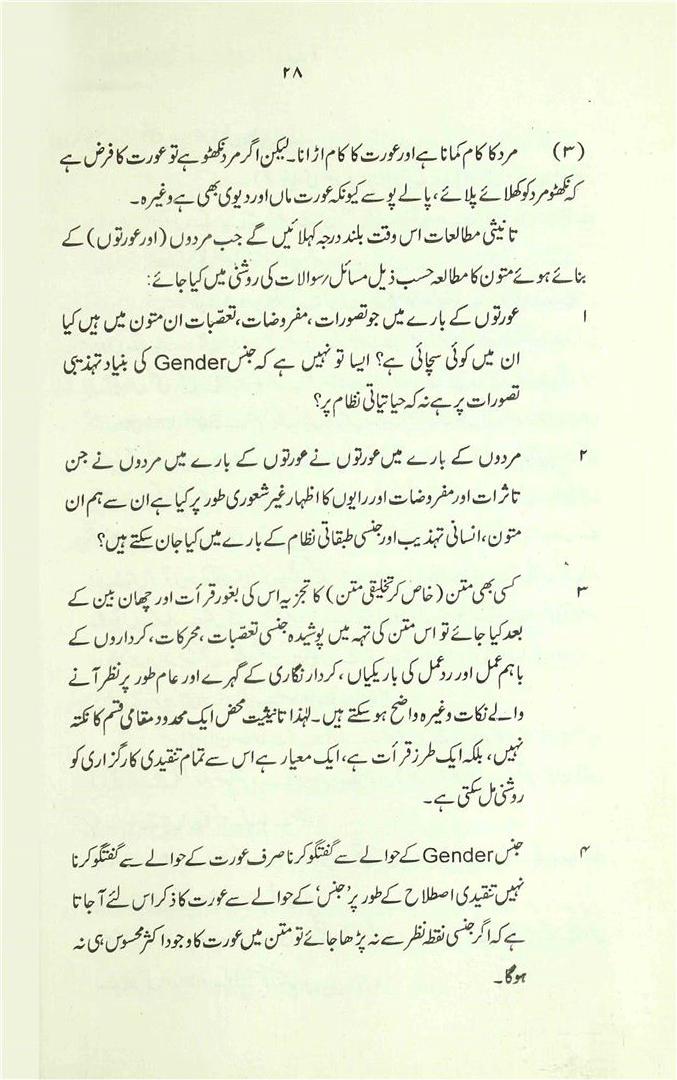 ۲۸
(۳) مرد کا کام کمانا ہے اور عورت کا کام اڑانا۔ لیکن اگر مرد نکھٹو ہے تو عورت کا فرض ہے
کہ نکھٹو مرد کو کھلائے پلائے، پالے پوسے کیونکہ عورت ماں اور دیوی بھی ہے وغیرہ۔
تانیثی مطالعات اس وقت بلند درجہ کہلائیں گے جب مردوں (اور عورتوں) کے
بنائے ہوئے متون کا مطالعہ حسب ذیل مسائل رسوالات کی روشنی میں کیا جائے:
۱ عورتوں کے بارے میں جو تصورات، مفروضات، تعصّبات ان متون میں ہیں کیا
ان میں کوئی سچائی ہے؟ ایسا تو نہیں ہے کہ جنس Gender کی بنیاد تہذیبی
تصورات پر ہے نہ کہ حیاتیاتی نظام پر؟
۲ مردوں کے بارے میں عورتوں نے عورتوں کے بارے میں مردوں نے جن
تاثرات اور مفروضات اور رایوں کا اظہار غیر شعوری طور پر کیا ہے ان سے ہم ان
متون، انسانی تہذیب اور جنسی طبقاتی نظام کے بارے میں کیا جان سکتے ہیں؟
۳ کسی بھی متن (خاص کر تخلیقی متن) کا تجزیہ اس کی بغور قرأت اور چھان بین کے
بعد کیا جائے تو اس متن کی تہہ میں پوشیدہ جنسی تعصّبات، محرکات، کرداروں کے
باہم عمل اور رد عمل کی باریکیاں، کردار نگاری کے گہرے اور عام طور پر نظر آنے
والے نکات وغیرہ واضح ہو سکتے ہیں۔ لہٰذا تانیثیت محض ایک محدود مقامی قسم کا نکتہ
نہیں، بلکہ ایک طرز قرأت ہے، ایک معیار ہے اس سے تمام تنقیدی کارگزاری کو
روشنی مل سکتی ہے۔
۴ جنس Gender کے حوالے سے گفتگو کرنا صرف عورت کے حوالے سے گفتگو کرنا
نہیں تنقیدی اصطلاح کے طور پر 'جنس' کے حوالے سے عورت کا ذکر اس لئے آ جاتا
ہے کہ اگر جنسی نقطہ نظر سے نہ پڑھا جائے تو متن میں عورت کا وجود اکثر محسوس ہی نہ
ہوگا۔